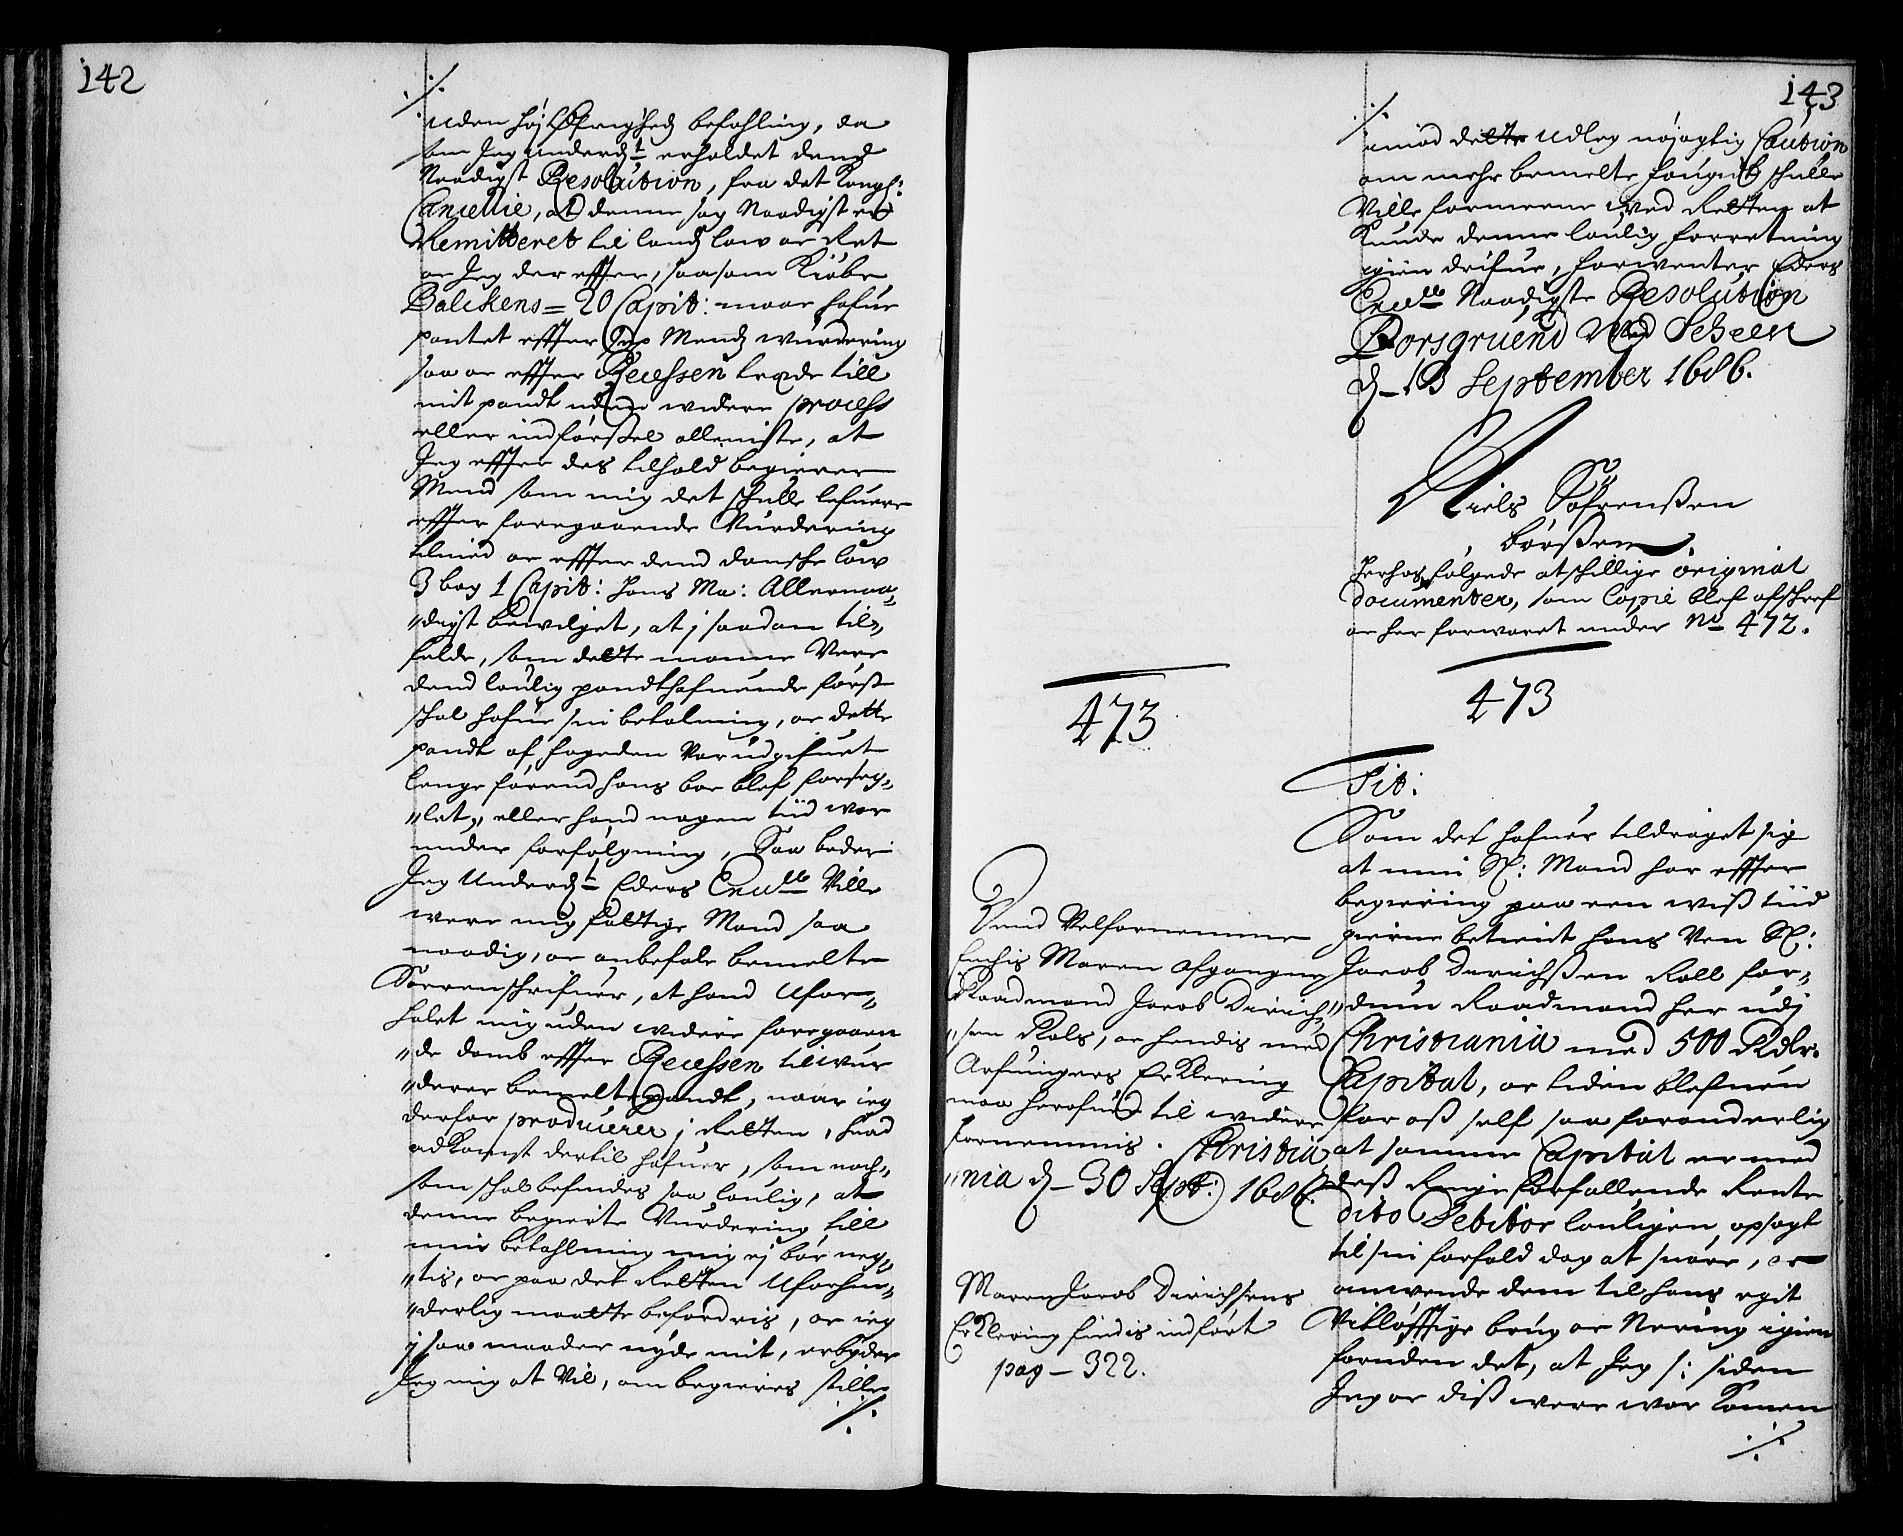 142
./.
uden høj Øfrigheds befahling, da
som Jeg underdt erholdet dend
Naadigst Resolution, fra det Kongl:
Cancellie, at denne sag Naadigst er
Remitteret til lands low oc Ret
oc Jeg der effter, saasom Kiøbe
Balckens = 20 Capit: maae hafue
pantet effter Sex Mends wurdering
saa oc effter Recessen træde till
mit pandt uden widere process
eller indførssel alleniste, at
Jeg effter des tilhold begierer
Mend som mig det schulle lefuere
effter foregaaende Vurdering
tilmed oc effter dend dansche low
3 bog 1 Capit: Hans Ma: Allernaa„
„digst bewilget, at j saadan til„
felde, som dette monne Vere
dend laulig pandthafuende først
schal hafue sin betalning, oc dette
pandt af fogeden Var udgifuet
lenge førend hans boe blef forseg„
„let, eller hand nogen tiid war
under forfølgning, Saa beder
Jeg Underdt Eders Excellce Ville
were mig fattige Mand saa
naadig, oc anbefale bemelte
Sorrenschrifuer, at hand Ufor„
halet mig uden widere foregaaen
„de domb effter Recessen til wur
„derer bemelte pandt, naar ieg
derfor producerer j Retten, huad
adkomst dertil hafuer, som noch„
som schal befindes saa laulig, at
denne begierte Vurdering till
min betahlning mig ej bør neg„
„tis, oc paa det Retten Uforhin„
„derlig maatte befordris, oc ieg
j saa maader nyde mit, erbyder
Jeg mig at Vil, om begieres stille
./.
143
./.
imod dette udleg nøjagtig Caution
om mehr bemelte fougit schulle
Ville formeene Wed Retten at
Kunde denne laulig forretning
igien drifue, forwenter Eders
Excellce Naadigste Resolution
Porsgruend Wed Scheen
d– 13 September 1686.
Niels Søfrenssen
børssen
Herhos følgede atschillige original
documenter, som Copie blef afschref
oc her forwaret under No 472.
473
473
Tit:
Dend Velfornemme
Enchis Maren afgangne
Raadmand Jacob Dirich„
„sen Rols, oc hendis med
Arfuingers Erklering
maa herofuer til widere
fornemmis. Christia
„nia d– 30 Sept: 1686.
Maren Jacob Dirichsens
Erklering findis indført
pag – 322.
Som det hafuer tildraget sig
at min Sl: Mand har effter
begiering paa een wiss tiid
gierne betient hans Ven Sl:
Jacob Dirichssen Roll for„
„dum Raadmand her udj
Christiania med 500 Rdlr.
Capital, oc tiden blefuen
for oss self saa foranderlig
at samme Capital er med
dess Ringe forfallende Rente
dito Debitor lauligen opsagt
til sin forfald dag at suare, oc
anwende dem til hans egit
Vitløfftige brug oc Nering igien
foruden det, at Jeg /: siden
Jeg oc diss were war komen
./.